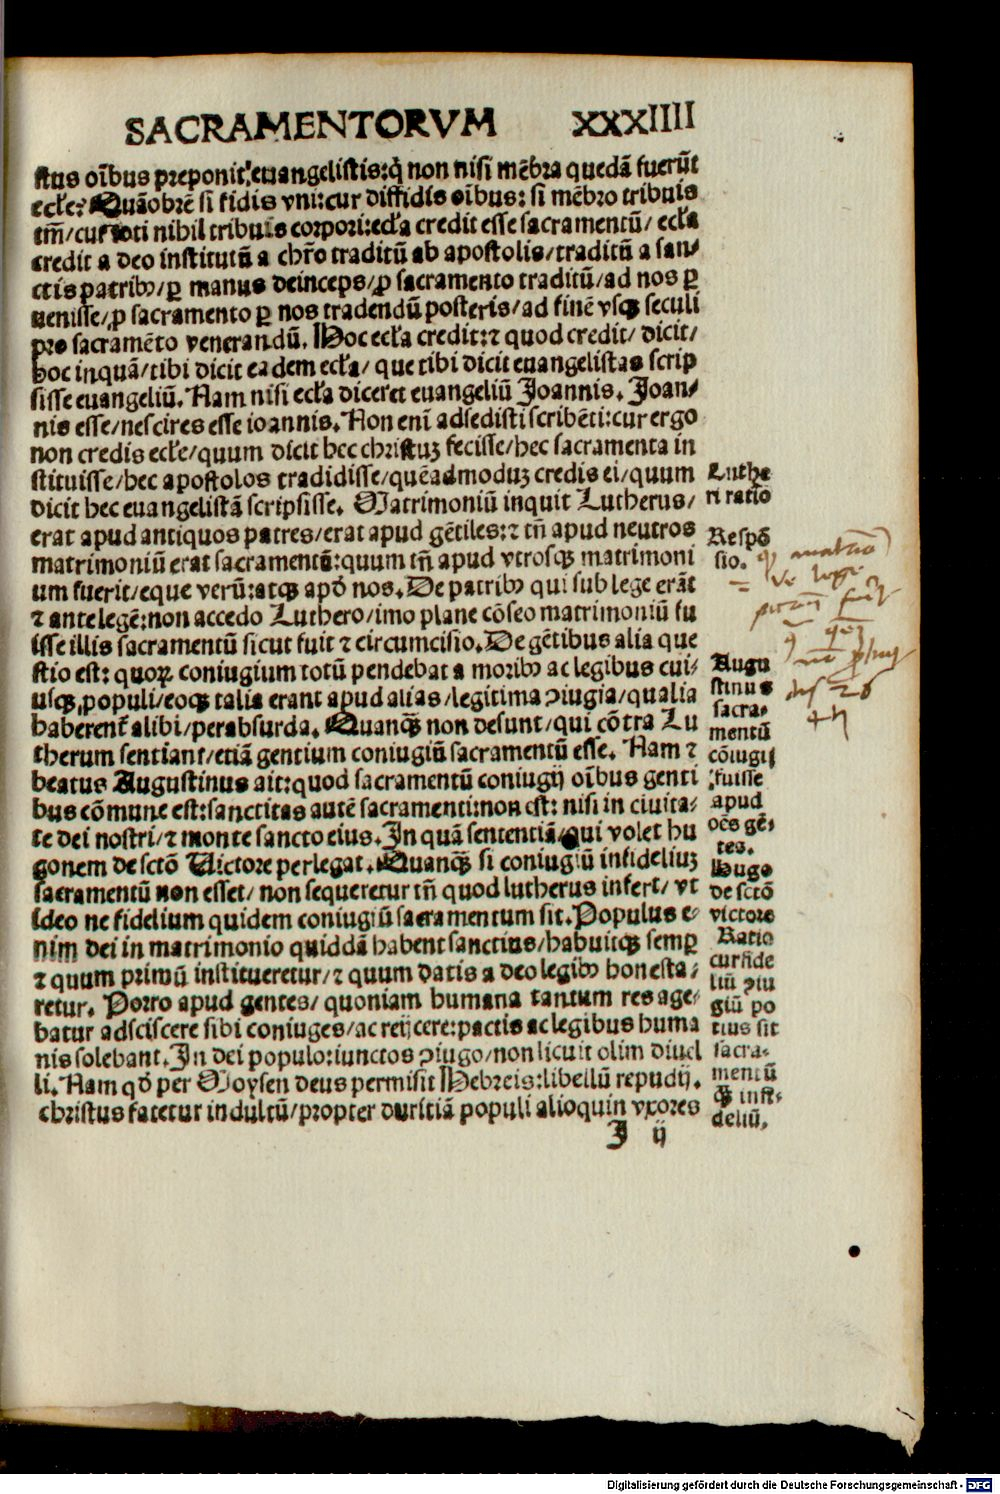 SACRAMENTORVM XXXIIII
stus oībus preponit: euangelistis: q̄ non nisi mēbra quedā fuerūt
eccƚe? Quāobrē si fidis vni: cur diffidis oībus: si mēbro tribuis
tm̄/ cur toti nihil tribuis corpori: eccƚa credit esse sacramentū/ eccƚa
credit a deo institutū a chr̄o traditū ab apostolis/ traditū a san⸗
ctis patribꝰ/ ꝑ manus deinceps/ ꝓ sacramento traditū/ ad nos ꝑ
uenisse/ ꝓ sacramento ꝑ nos tradendū posteris/ ad finē vsqꝫ seculi
pro sacramēto venerandū. Hoc eccƚa credit: ⁊ quod credit/ dicit/
hoc inquā/ tibi dicit eadem eccƚa/ que tibi dicit euangelistas scrip
sisse euangeliū. Nam nisi eccƚa diceret euangeliū Joannis. Joan⸗
nis esse/ nescires esse ioannis. Non enī adsedisti scribēti: cur ergo
non credis eccƚe/ quum dicit hec christuꝫ fecisse/ hec sacramenta in
stituisse/ hec apostolos tradidisse/ quēadmoduꝫ credis ei/ quum
dicit hec euangelistā scripsisse. Matrimoniū inquit Lutherus/
erat apud antiquos patres/ erat apud gētiles: ⁊ tn̄ apud neutros
matrimoniū erat sacramentū: quum tn̄ apud vtrosqꝫ matrimoni
um fuerit/ eque verū: atqꝫ apd̄ nos. De patribꝰ qui sub lege erāt
⁊ ante legē: non accedo Luthero/ imo plane cōseo matrimoniū fu
isse illis sacramentū sicut fuit ⁊ circumcisio. De gētibus alia que
stio est: quoꝝ coniugium totū pendebat a moribꝰ ac legibus cui⸗
usqꝫ populi/ eoqꝫ talia erant apud alias/ legitima ꝯiugia/ qualia
haberent̄ alibi/ perabsurda. Quanqꝫ non desunt/ qui cōtra Lu
therum sentiant/ etiā gentium coniugiū sacramentū esse. Nam ⁊
beatus Augustinus ait: quod sacramentū coniugij oībus genti
bus cōmune est: sanctitas autē sacramenti: non est: nisi in ciuita⸗
te dei nostri/ ⁊ monte sancto eius. In quā sententiā/ qui volet hu
gonem de sctō Victore perlegat. Quanqꝫ si coniugiū infideliuꝫ
sacramentū non esset/ non sequeretur tn̄ quod lutherus infert/ vt
ideo ne fidelium quidem coniugiū sacramentum sit. Populus e⸗
nim dei in matrimonio quiddā habent sanctius/ habuitqꝫ semꝑ
⁊ quum primū institueretur/ ⁊ quum datis a deo legibꝰ honesta⸗
retur. Porro apud gentes/ quoniam humana tantum res age⸗
batur adsciscere sibi coniuges/ ac reijcere: pactis ac legibus huma
nis solebant. In dei populo: iunctos ꝯiugo/ non licuit olim diuel
li. Nam qd̄ per Moysen deus permisit Hebreis: libellū repudij.
christus fatetur indultū/ propter duritiā populi alioquin vxores
J ij
Luthe
ri ratio
Respō
sio.
Augu
stinus
sacra⸗
mentū
cōiugij
fuisse
apud
oēs gē⸗
tes.
Hugo
de sctō
victore
Ratio
cur fide
liū ꝯiu
giū po
tius sit
sacra⸗
mentū
qꝫ infi⸗
deliū.
Digitalisierung gefördert durch die Deutsche Forschungsgemeinschaft - DFG